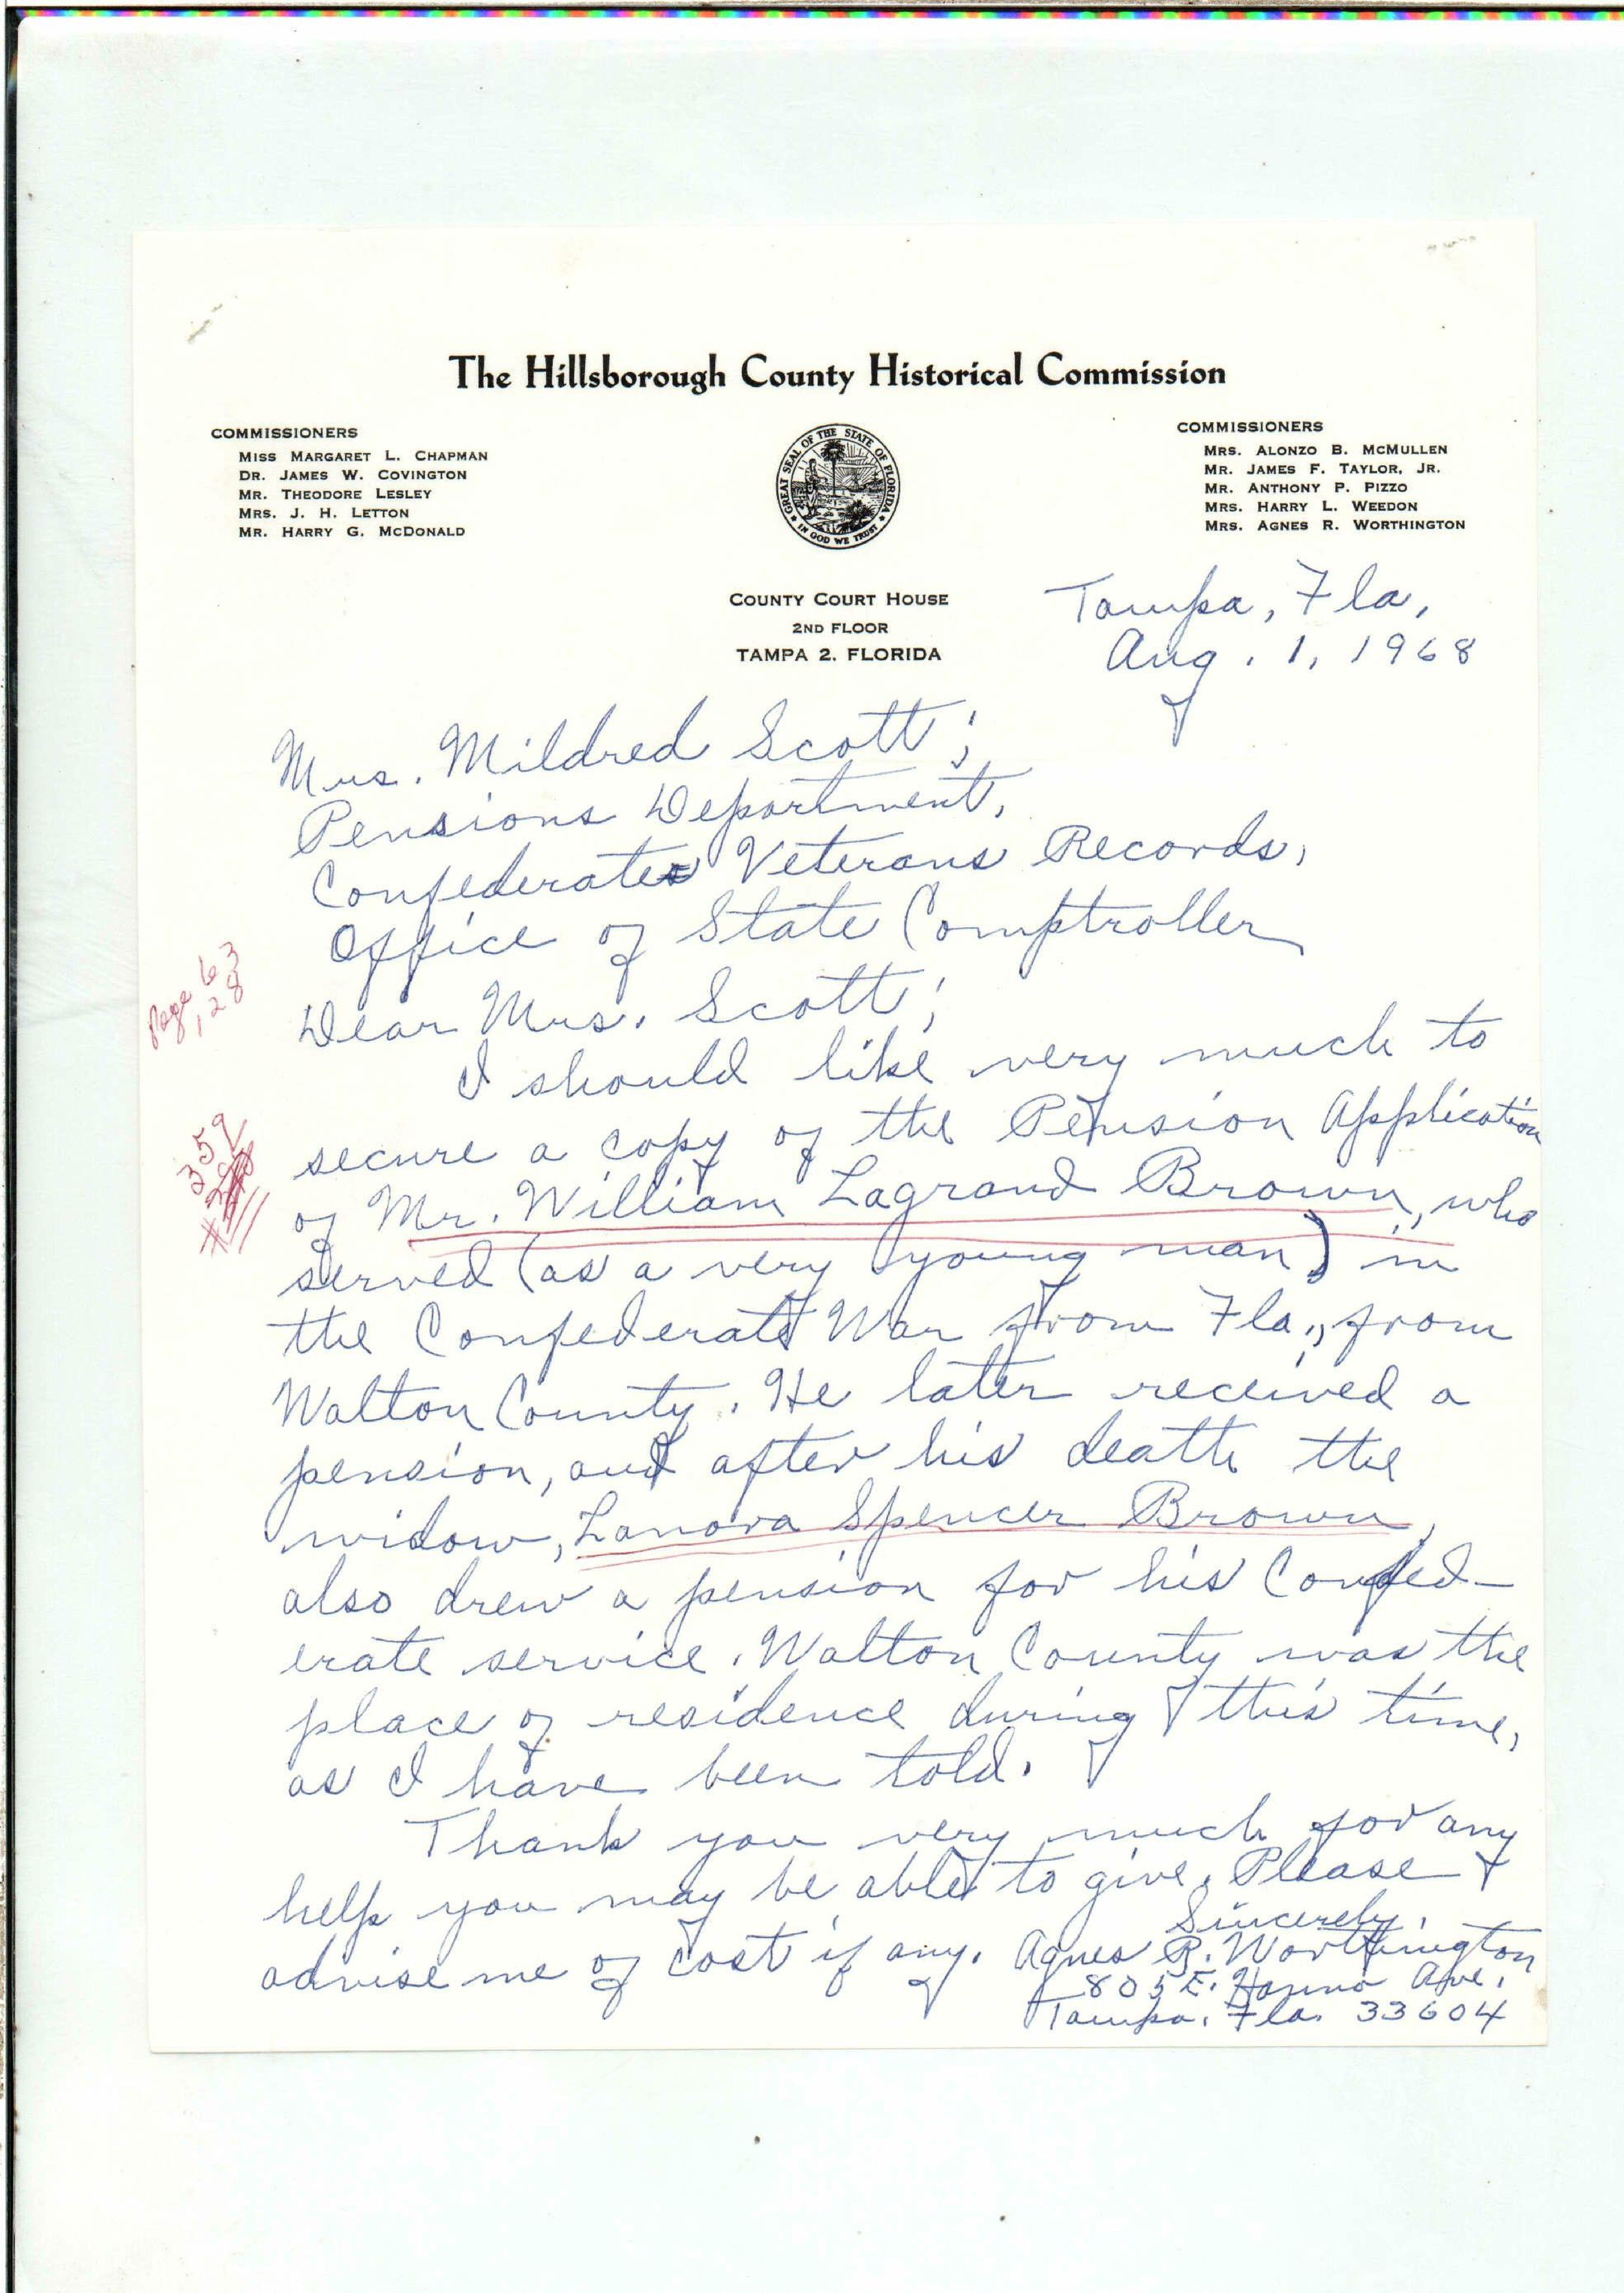 The Hillsborough County Historical Commission
COMMISSIONERS
MISS MARGARET L. CHAPMAN
DR. JAMES W. COVINGTON
MR. THEODORE LESLEY
MRS. J. H. LETTON
MR. HARRY G. McDONALD
GREAT SEAL OF THE STATE OF FLORIDA
IN GOD WE TRUST
COMMISSIONERS
MRS. ALONZO B. McMULLEN
MR. JAMES F. TAYLOR, JR.
MR. ANTHONY P. PIZZO
MRS. HARRY L. WEEDON
MRS. AGNES R. WORTHINGTON
COUNTY COURT HOUSE
2ND FLOOR
TAMPA 2, FLORIDA
Tampa, Fla,
Aug. 1, 1968
Mrs. Mildred Scott;
Pensions Department,
Confederate Veterans Records,
Office of State Comptroller
Page 63
128
Dear Mrs. Scott;
I should like very much to
secure a copy of the Pension Application
359
of Mr. William Lagrand Brown, who
served (as a very young man) in
the Confederate War from Fla., from
Walton County. He later received a
pension, and after his death the
widow, Lanora Spencer Brown,
also drew a pension for his Confed-
erate service. Walton County was the
place of residence during this time,
as I have been told.
Thank you very much for any
help you may be able to give. Please
advise me of cost if any.
Sincerely,
Agnes R. Worthington
805 E. Hanna Ave.
Tampa, Fla. 33604